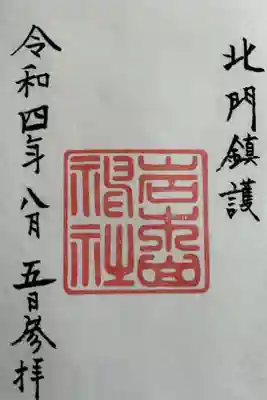 北門鎮護
岩木山
神社
令和四年八月五日参拝